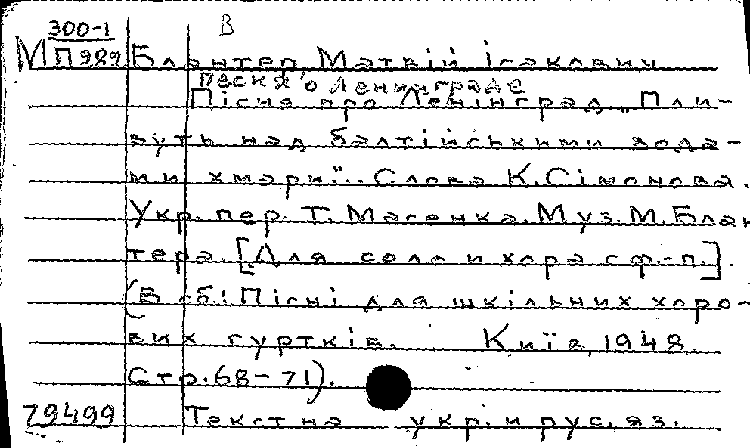 300-1 В
М П989 Блантер, Матвій Ісакович
Песня о Ленинграде
Пісня про Ленінград. „Пли-
вуть над балтійськими вода-
ми хмари“.. Слова К. Сімонова.
Укр. пер. Т. Масенка. Муз. М. Блан
тера. [Для соло и хора с ф.-п.].
(В сб: Пісні для шкільних хоро-
вих гуртків. Київ, 1948.
Стр. 68-71).
79499 Текст на укр. и рус. яз.